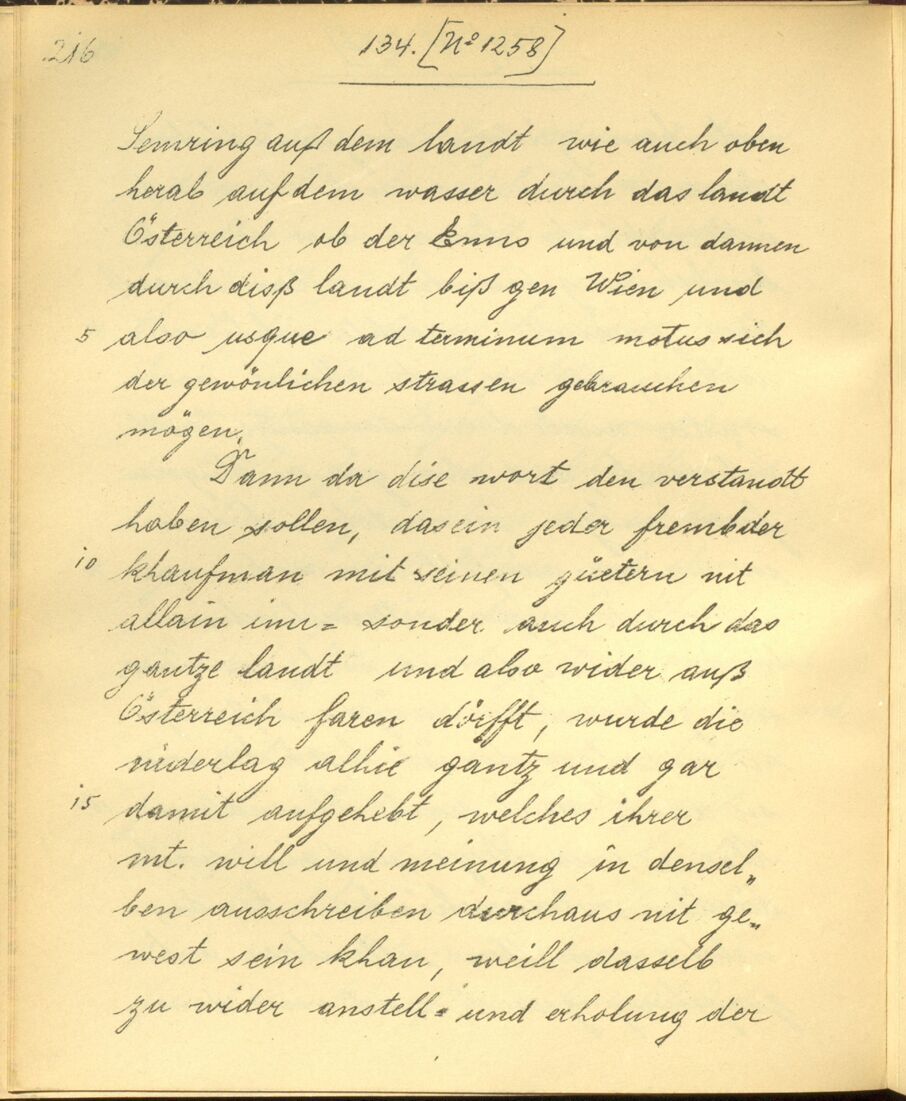 216
134. [No 1258]
Semring auß dem landt wie auch oben
herab auf dem wasser durch das landt
Österreich ob der Enns und von dannen
durch disß landt biß gen Wien und
5 also usque ad terminum motus sich
der gewönlichen strassen gebrauchen
mögen.
Dann da dise wort den verstandt
haben sollen, das ein jeder frembder
10 khaufman mit seinen güetern nit
allain inn= sonder auch durch das
gantze landt und also wider auß
Österreich faren dörfft, wurde die
niderlag alhie gantz und gar
15 damit aufgehebt, welches ihrer
mt. will und meinung in densel„
ben ausschreiben durchaus nit ge„
west sein khan, weill dasselb
zu wider anstell= und erholung der